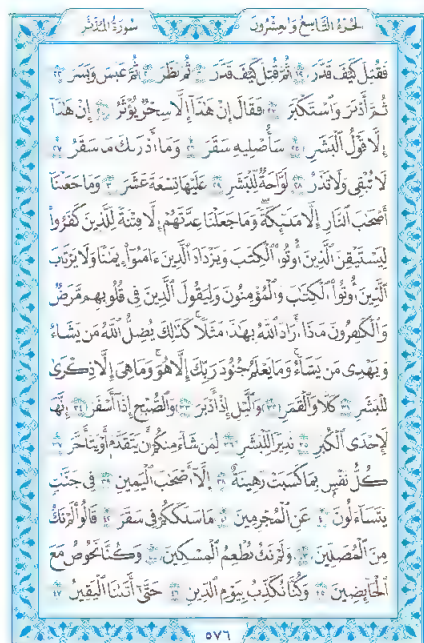 سُورَةُ المُدَّثِّر الجُزْءُ التَّاسِعُ وَالعِشْرُونَ
فَقُتِلَ كَيْفَ قَدَّرَ ١٩ ثُمَّ قُتِلَ كَيْفَ قَدَّرَ ٢٠ ثُمَّ نَظَرَ ٢١ ثُمَّ عَبَسَ وَبَسَرَ ٢٢
ثُمَّ أَدْبَرَ وَاسْتَكْبَرَ ٢٣ فَقَالَ إِنْ هَٰذَا إِلَّا سِحْرٌ يُؤْثَرُ ٢٤ إِنْ هَٰذَا
إِلَّا قَوْلُ الْبَشَرِ ٢٥ سَأُصْلِيهِ سَقَرَ ٢٦ وَمَا أَدْرَاكَ مَا سَقَرُ ٢٧
لَا تُبْقِي وَلَا تَذَرُ ٢٨ لَوَّاحَةٌ لِّلْبَشَرِ ٢٩ عَلَيْهَا تِسْعَةَ عَشَرَ ٣٠ وَمَا جَعَلْنَا
أَصْحَٰبَ النَّارِ إِلَّا مَلَٰئِكَةً وَمَا جَعَلْنَا عِدَّتَهُمْ إِلَّا فِتْنَةً لِّلَّذِينَ كَفَرُوا
لِيَسْتَيْقِنَ الَّذِينَ أُوتُوا الْكِتَٰبَ وَيَزْدَادَ الَّذِينَ ءَامَنُوا إِيمَٰنًا وَلَا يَرْتَابَ
الَّذِينَ أُوتُوا الْكِتَٰبَ وَالْمُؤْمِنُونَ وَلِيَقُولَ الَّذِينَ فِي قُلُوبِهِم مَّرَضٌ
وَالْكَٰفِرُونَ مَاذَا أَرَادَ اللَّهُ بِهَٰذَا مَثَلًا كَذَٰلِكَ يُضِلُّ اللَّهُ مَن يَشَاءُ
وَيَهْدِي مَن يَشَاءُ وَمَا يَعْلَمُ جُنُودَ رَبِّكَ إِلَّا هُوَ وَمَا هِيَ إِلَّا ذِكْرَىٰ
لِلْبَشَرِ ٣١ كَلَّا وَالْقَمَرِ ٣٢ وَالَّيْلِ إِذْ أَدْبَرَ ٣٣ وَالصُّبْحِ إِذَا أَسْفَرَ ٣٤ إِنَّهَا
لَإِحْدَى الْكُبَرِ ٣٥ نَذِيرًا لِّلْبَشَرِ ٣٦ لِمَن شَاءَ مِنكُمْ أَن يَتَقَدَّمَ أَوْ يَتَأَخَّرَ ٣٧
كُلُّ نَفْسٍ بِمَا كَسَبَتْ رَهِينَةٌ ٣٨ إِلَّا أَصْحَٰبَ الْيَمِينِ ٣٩ فِي جَنَّٰتٍ
يَتَسَاءَلُونَ ٤٠ عَنِ الْمُجْرِمِينَ ٤١ مَا سَلَكَكُمْ فِي سَقَرَ ٤٢ قَالُوا لَمْ نَكُ
مِنَ الْمُصَلِّينَ ٤٣ وَلَمْ نَكُ نُطْعِمُ الْمِسْكِينَ ٤٤ وَكُنَّا نَخُوضُ مَعَ
الْخَائِضِينَ ٤٥ وَكُنَّا نُكَذِّبُ بِيَوْمِ الدِّينِ ٤٦ حَتَّىٰ أَتَىٰنَا الْيَقِينُ ٤٧
٥٧٦